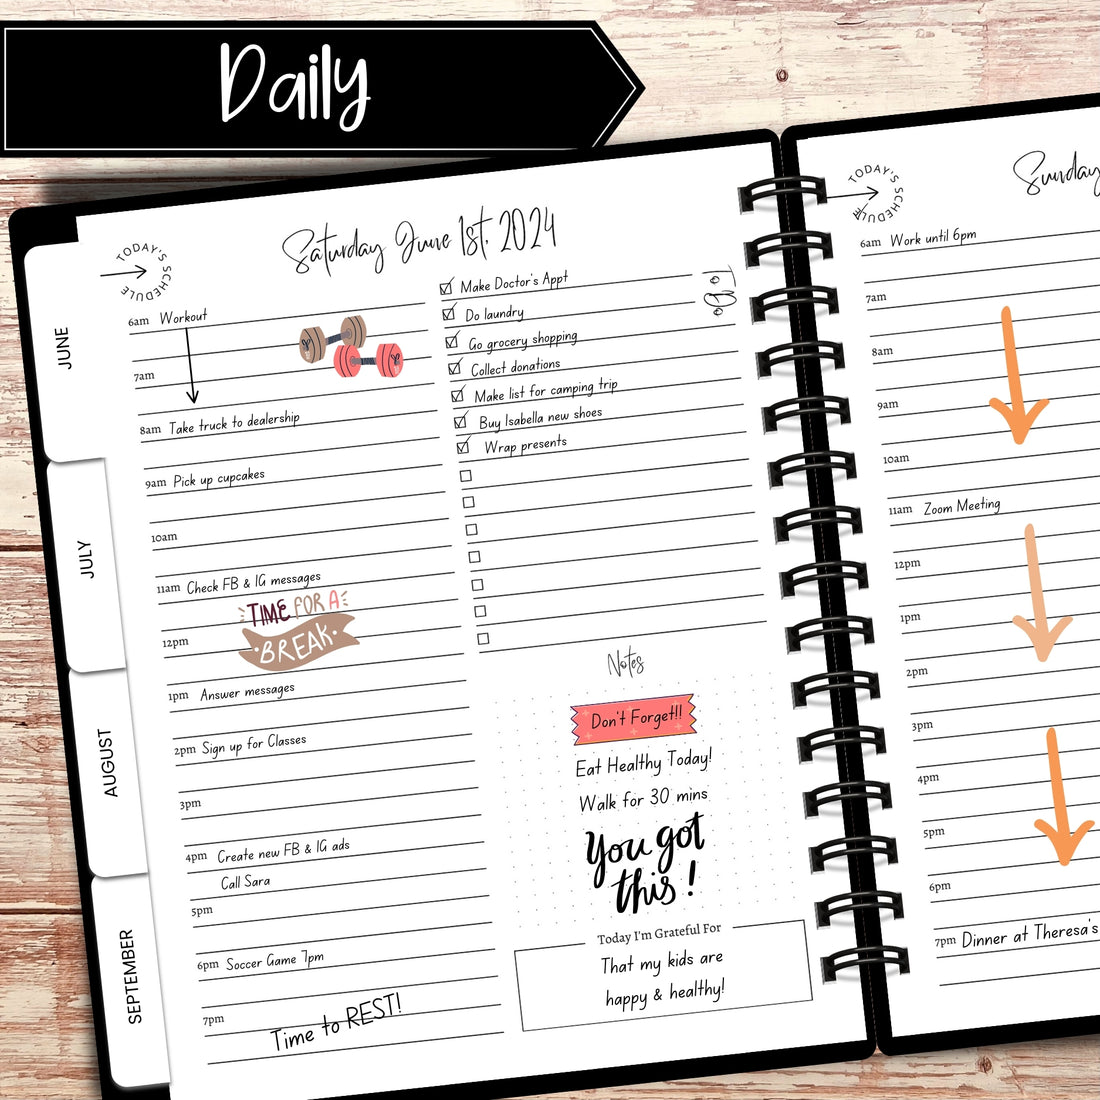 Daily
JUNE
JULY
AUGUST
SEPTEMBER
TODAY'S SCHEDULE
Saturday June 1st, 2024
6am Workout
7am
8am Take truck to dealership
9am Pick up cupcakes
10am
11am Check FB & IG messages
TIME FOR A
BREAK
12pm
1pm Answer messages
2pm Sign up for Classes
3pm
4pm Create new FB & IG ads
Call Sara
5pm
6pm Soccer Game 7pm
7pm
Time to REST!
To Do
Make Doctor's Appt
Do laundry
Go grocery shopping
Collect donations
Make list for camping trip
Buy Isabella new shoes
Wrap presents
Notes
Don't Forget!!
Eat Healthy Today!
Walk for 30 mins
You got
this!
Today I'm Grateful For
That my kids are
happy & healthy!
TODAY'S SCHEDULE
Sunday
6am Work until 6pm
7am
8am
9am
10am
11am Zoom Meeting
12pm
1pm
2pm
3pm
4pm
5pm
6pm
7pm Dinner at Theresa's